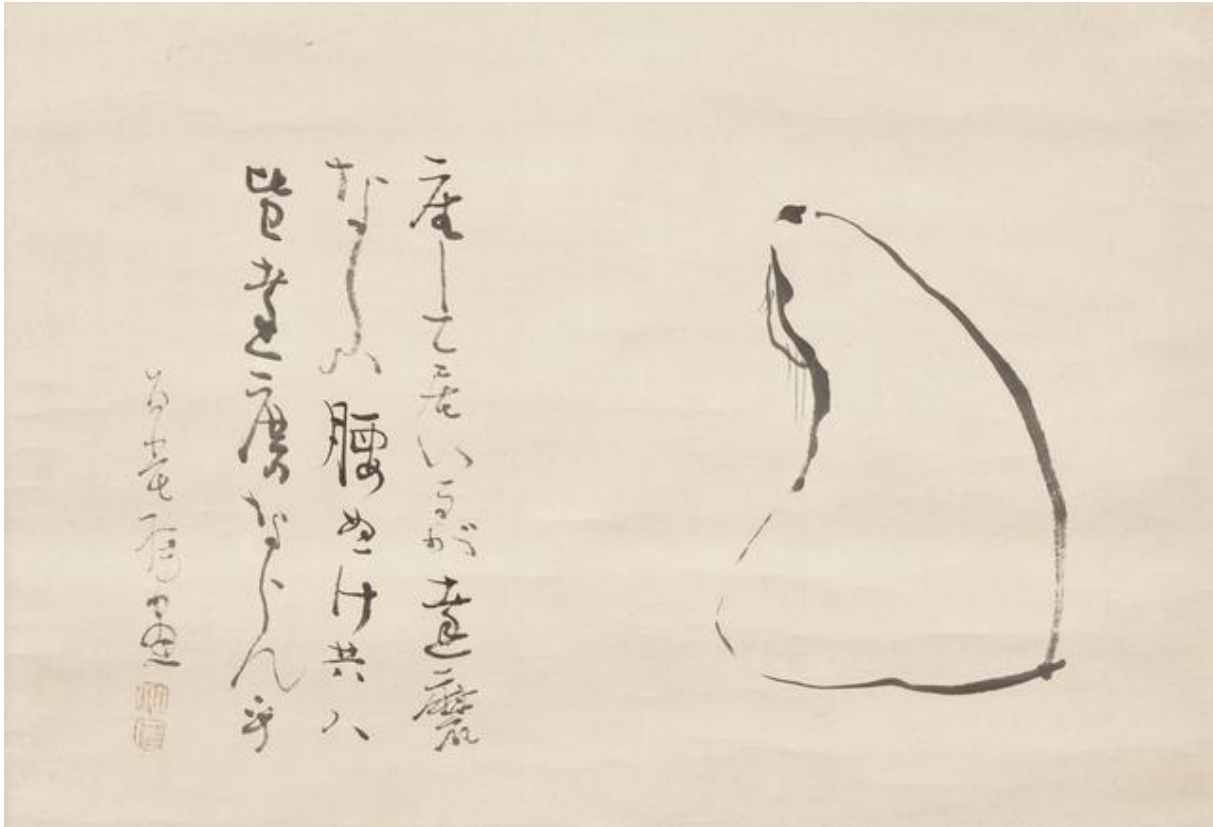 座して居いるが達磨
ならハ腰ぬけ共ハ
皆達磨ならん乎